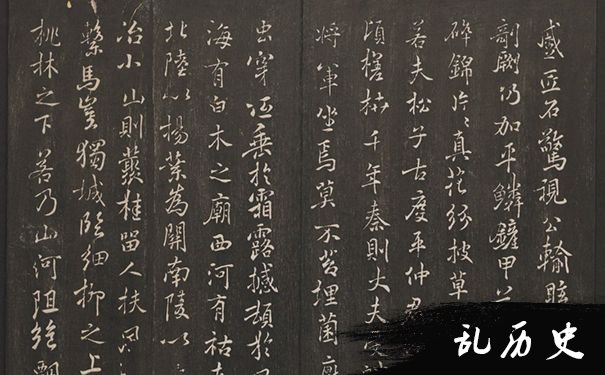 感匠石驚視公輸眩
剞劂仍加平鱗鏟甲
碎錦片々真花紛披草
若夫松子古度平仲君
頃槎枿千年秦則大夫受
將軍坐焉莫不苔埋菌壓
虫穿低垂於霜露撼頓於
海有白木之廟西河有枯
北陸以楊葉為關南陵以
冶小山則叢桂留人扶風
繫馬豈獨城臨細柳之上
桃林之下若乃山河阻絕飄
乱历史